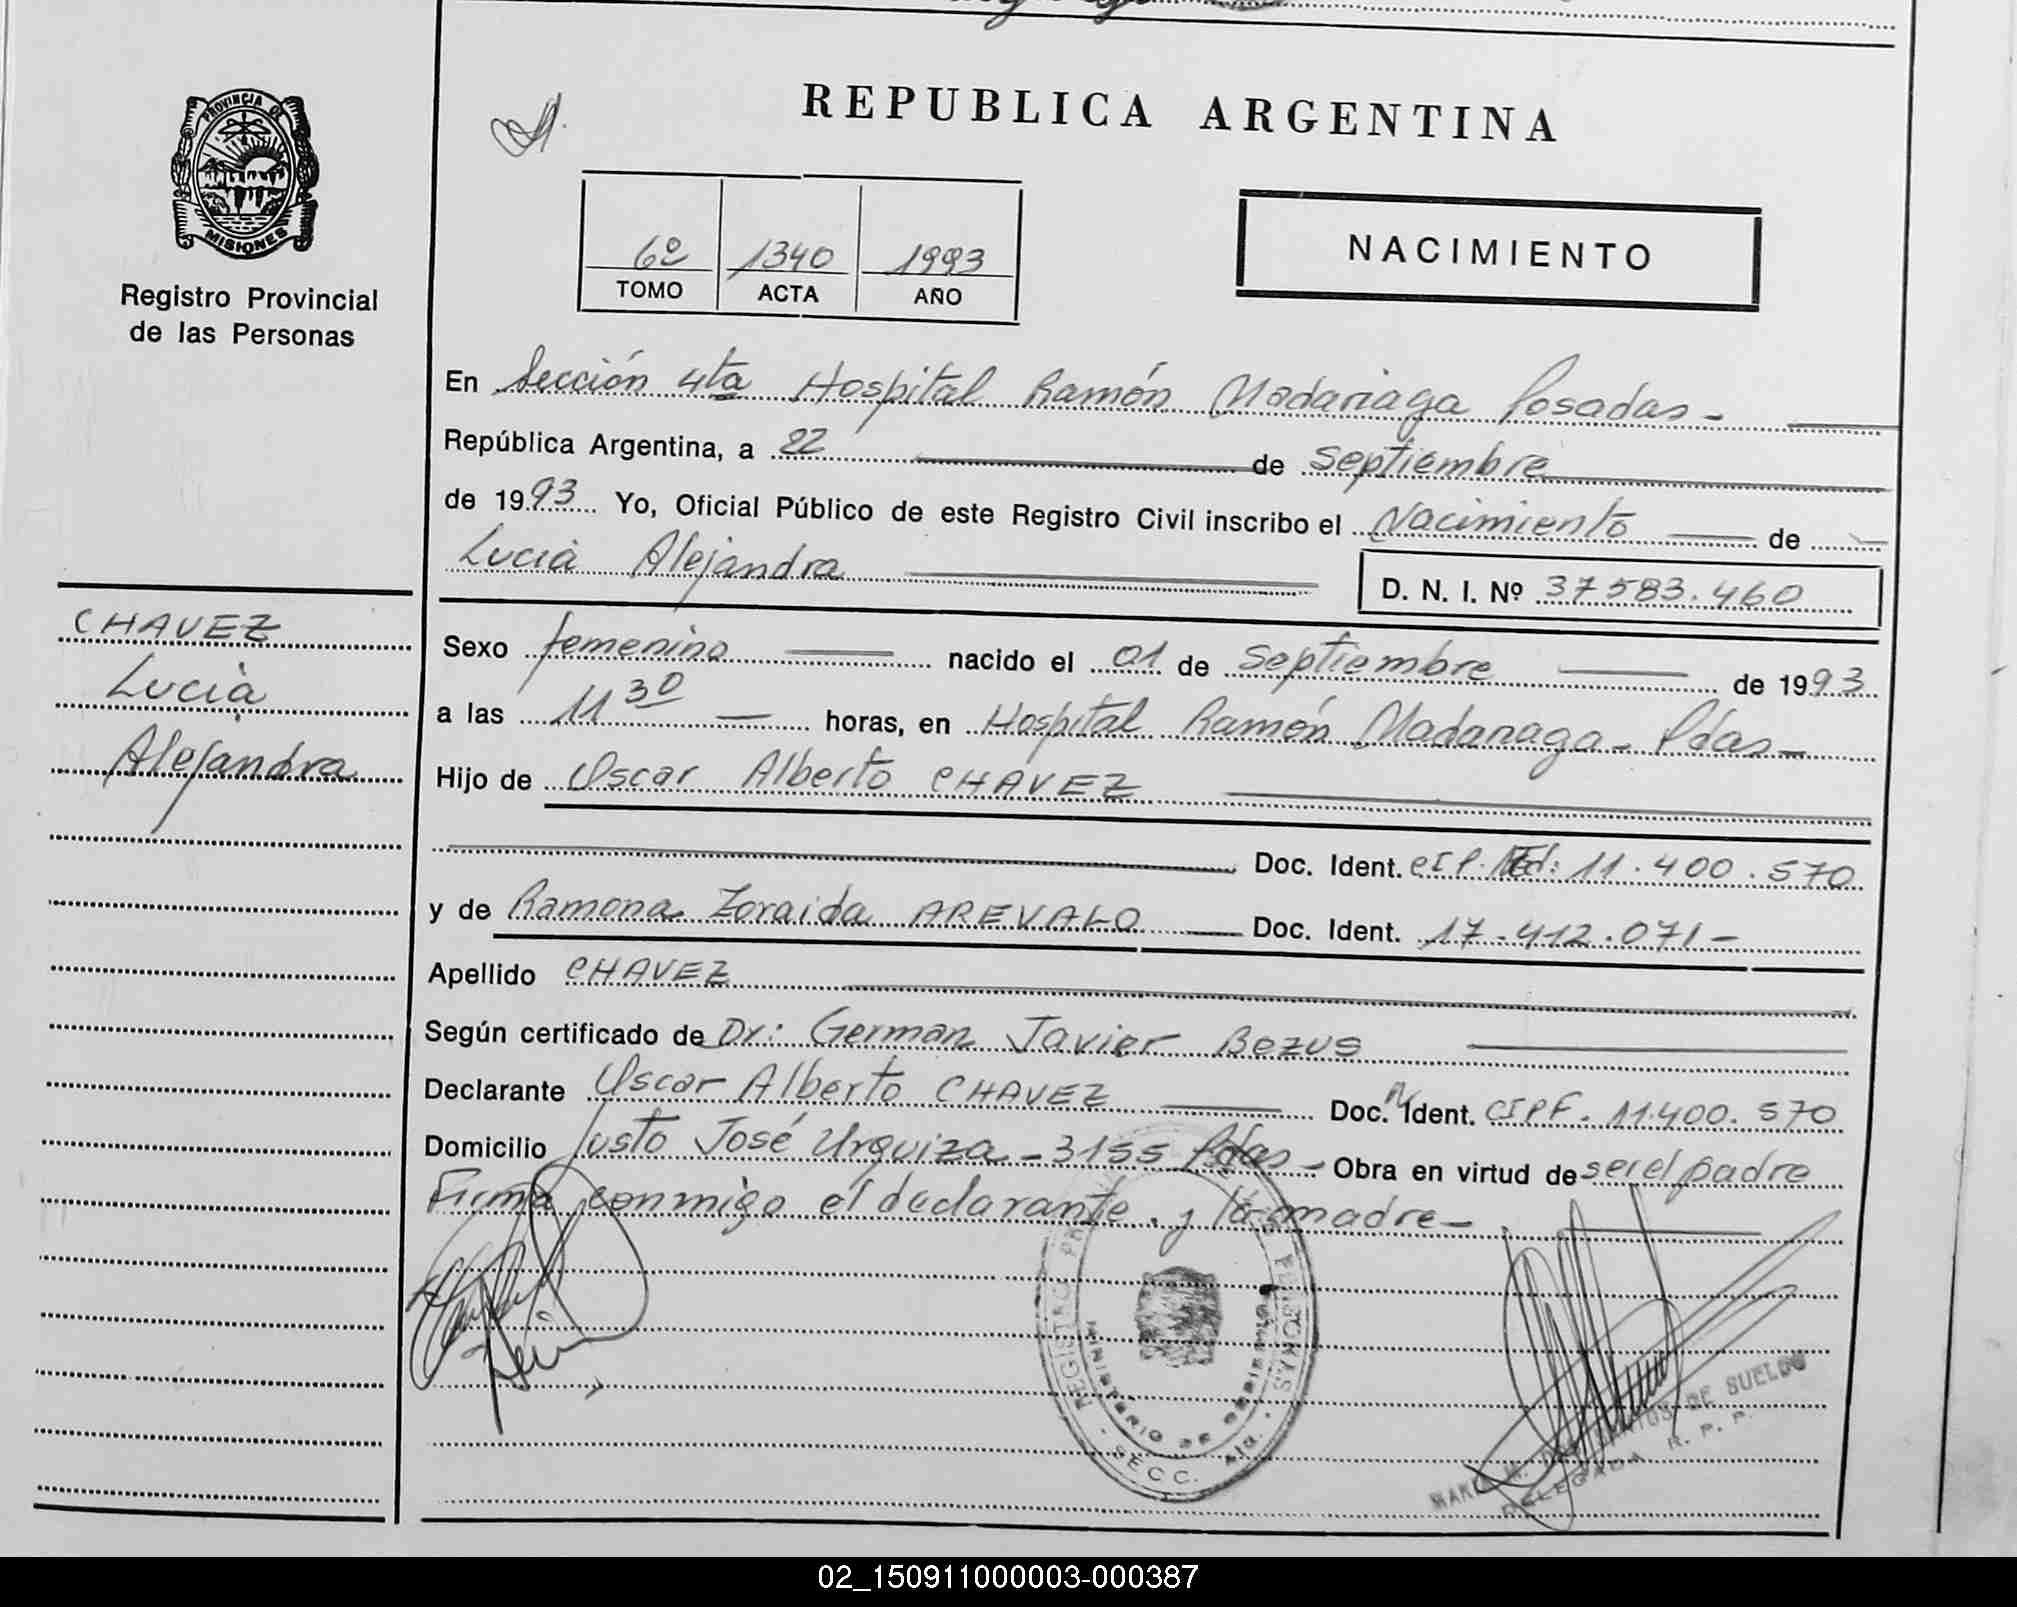 PROVINCIA DE
MISIONES
Registro Provincial
de las Personas
CHAVEZ
Lucia
Alejandra
REPUBLICA ARGENTINA
6º 1340 1993
TOMO ACTA AÑO
NACIMIENTO
En Sección 4ta Hospital Ramón Madariaga Posadas-
República Argentina, a 22 de septiembre
de 1993 Yo, Oficial Público de este Registro Civil inscribo el Nacimiento de
Lucia Alejandra D. N. I. Nº 37583.460
Sexo femenino nacido el 01 de septiembre de 1993
a las 11 30 horas, en Hospital Ramón Madariaga- Pdas-
Hijo de Oscar Alberto CHAVEZ
Doc. Ident. 11.400.570
y de Ramona Zoraida AREVALO Doc. Ident. 17-412.071-
Apellido CHAVEZ
Según certificado de Dr: German Javier Bezus
Declarante Oscar Alberto CHAVEZ Doc. Ident. CIPF. 11.400.570
Domicilio Justo José Urquiza-3155 Pdas- Obra en virtud de ser el padre
Firma conmigo el declarante. y la madre-
REGISTRO PERSONAS
MINISTERIO DE GOBIERNO
SECC. 4ta.
DE SUELDO
DELEGADA R. P. P.
02_150911000003-000387